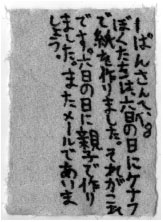 ーばんさんへ。
ぼくたちは、六日の日にケナフ
で紙を作りました。それがこれ
です。六日の日に親子で作り
ました。またメールであいま
しょう。